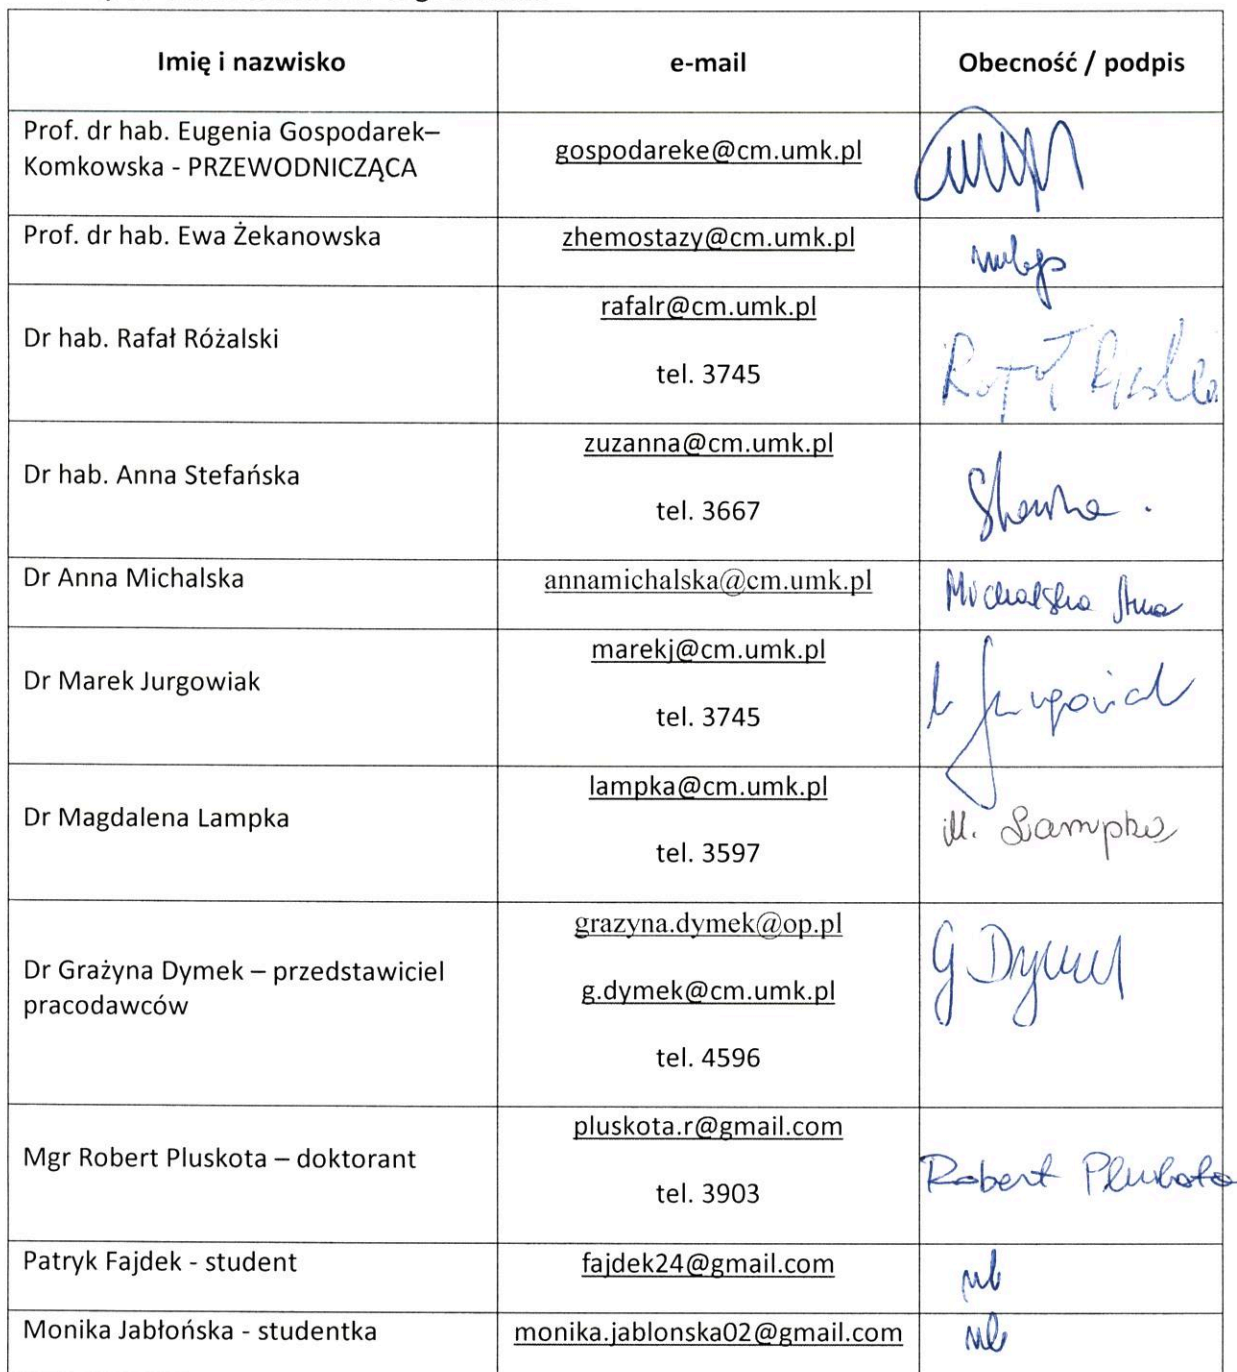 Imię i nazwisko
e-mail
Obecność / podpis
Prof. dr hab. Eugenia Gospodarek–
Komkowska - PRZEWODNICZĄCA
gospodareke@cm.umk.pl
Prof. dr hab. Ewa Żekanowska
zhemostazy@cm.umk.pl
Dr hab. Rafał Różalski
rafalr@cm.umk.pl
tel. 3745
Dr hab. Anna Stefańska
zuzanna@cm.umk.pl
tel. 3667
Dr Anna Michalska
annamichalska@cm.umk.pl
Michalska Anna
Dr Marek Jurgowiak
marekj@cm.umk.pl
tel. 3745
Dr Magdalena Lampka
lampka@cm.umk.pl
tel. 3597
M. Lampka
Dr Grażyna Dymek – przedstawiciel
pracodawców
grazyna.dymek@op.pl
g.dymek@cm.umk.pl
tel. 4596
G Dymek
Mgr Robert Pluskota – doktorant
pluskota.r@gmail.com
tel. 3903
Robert Pluskota
Patryk Fajdek - student
fajdek24@gmail.com
nb
Monika Jabłońska - studentka
monika.jablonska02@gmail.com
nb